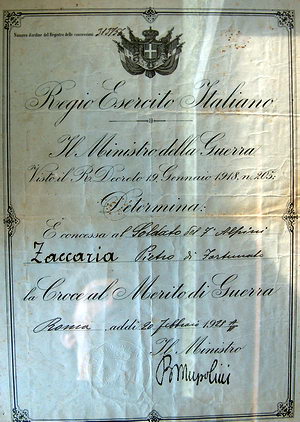 Numero d'ordine del Registro delle concessioni
Regio Esercito Italiano
Il Ministro della Guerra
Visto il R. Decreto 19 Gennaio 1918, n. 205:
Determina:
È concessa al Soldato del 7 Alpini
Zaccaria Pietro di Fortunato
la Croce al Merito di Guerra
Roma, addì 20 Febbraio 1921
Il Ministro